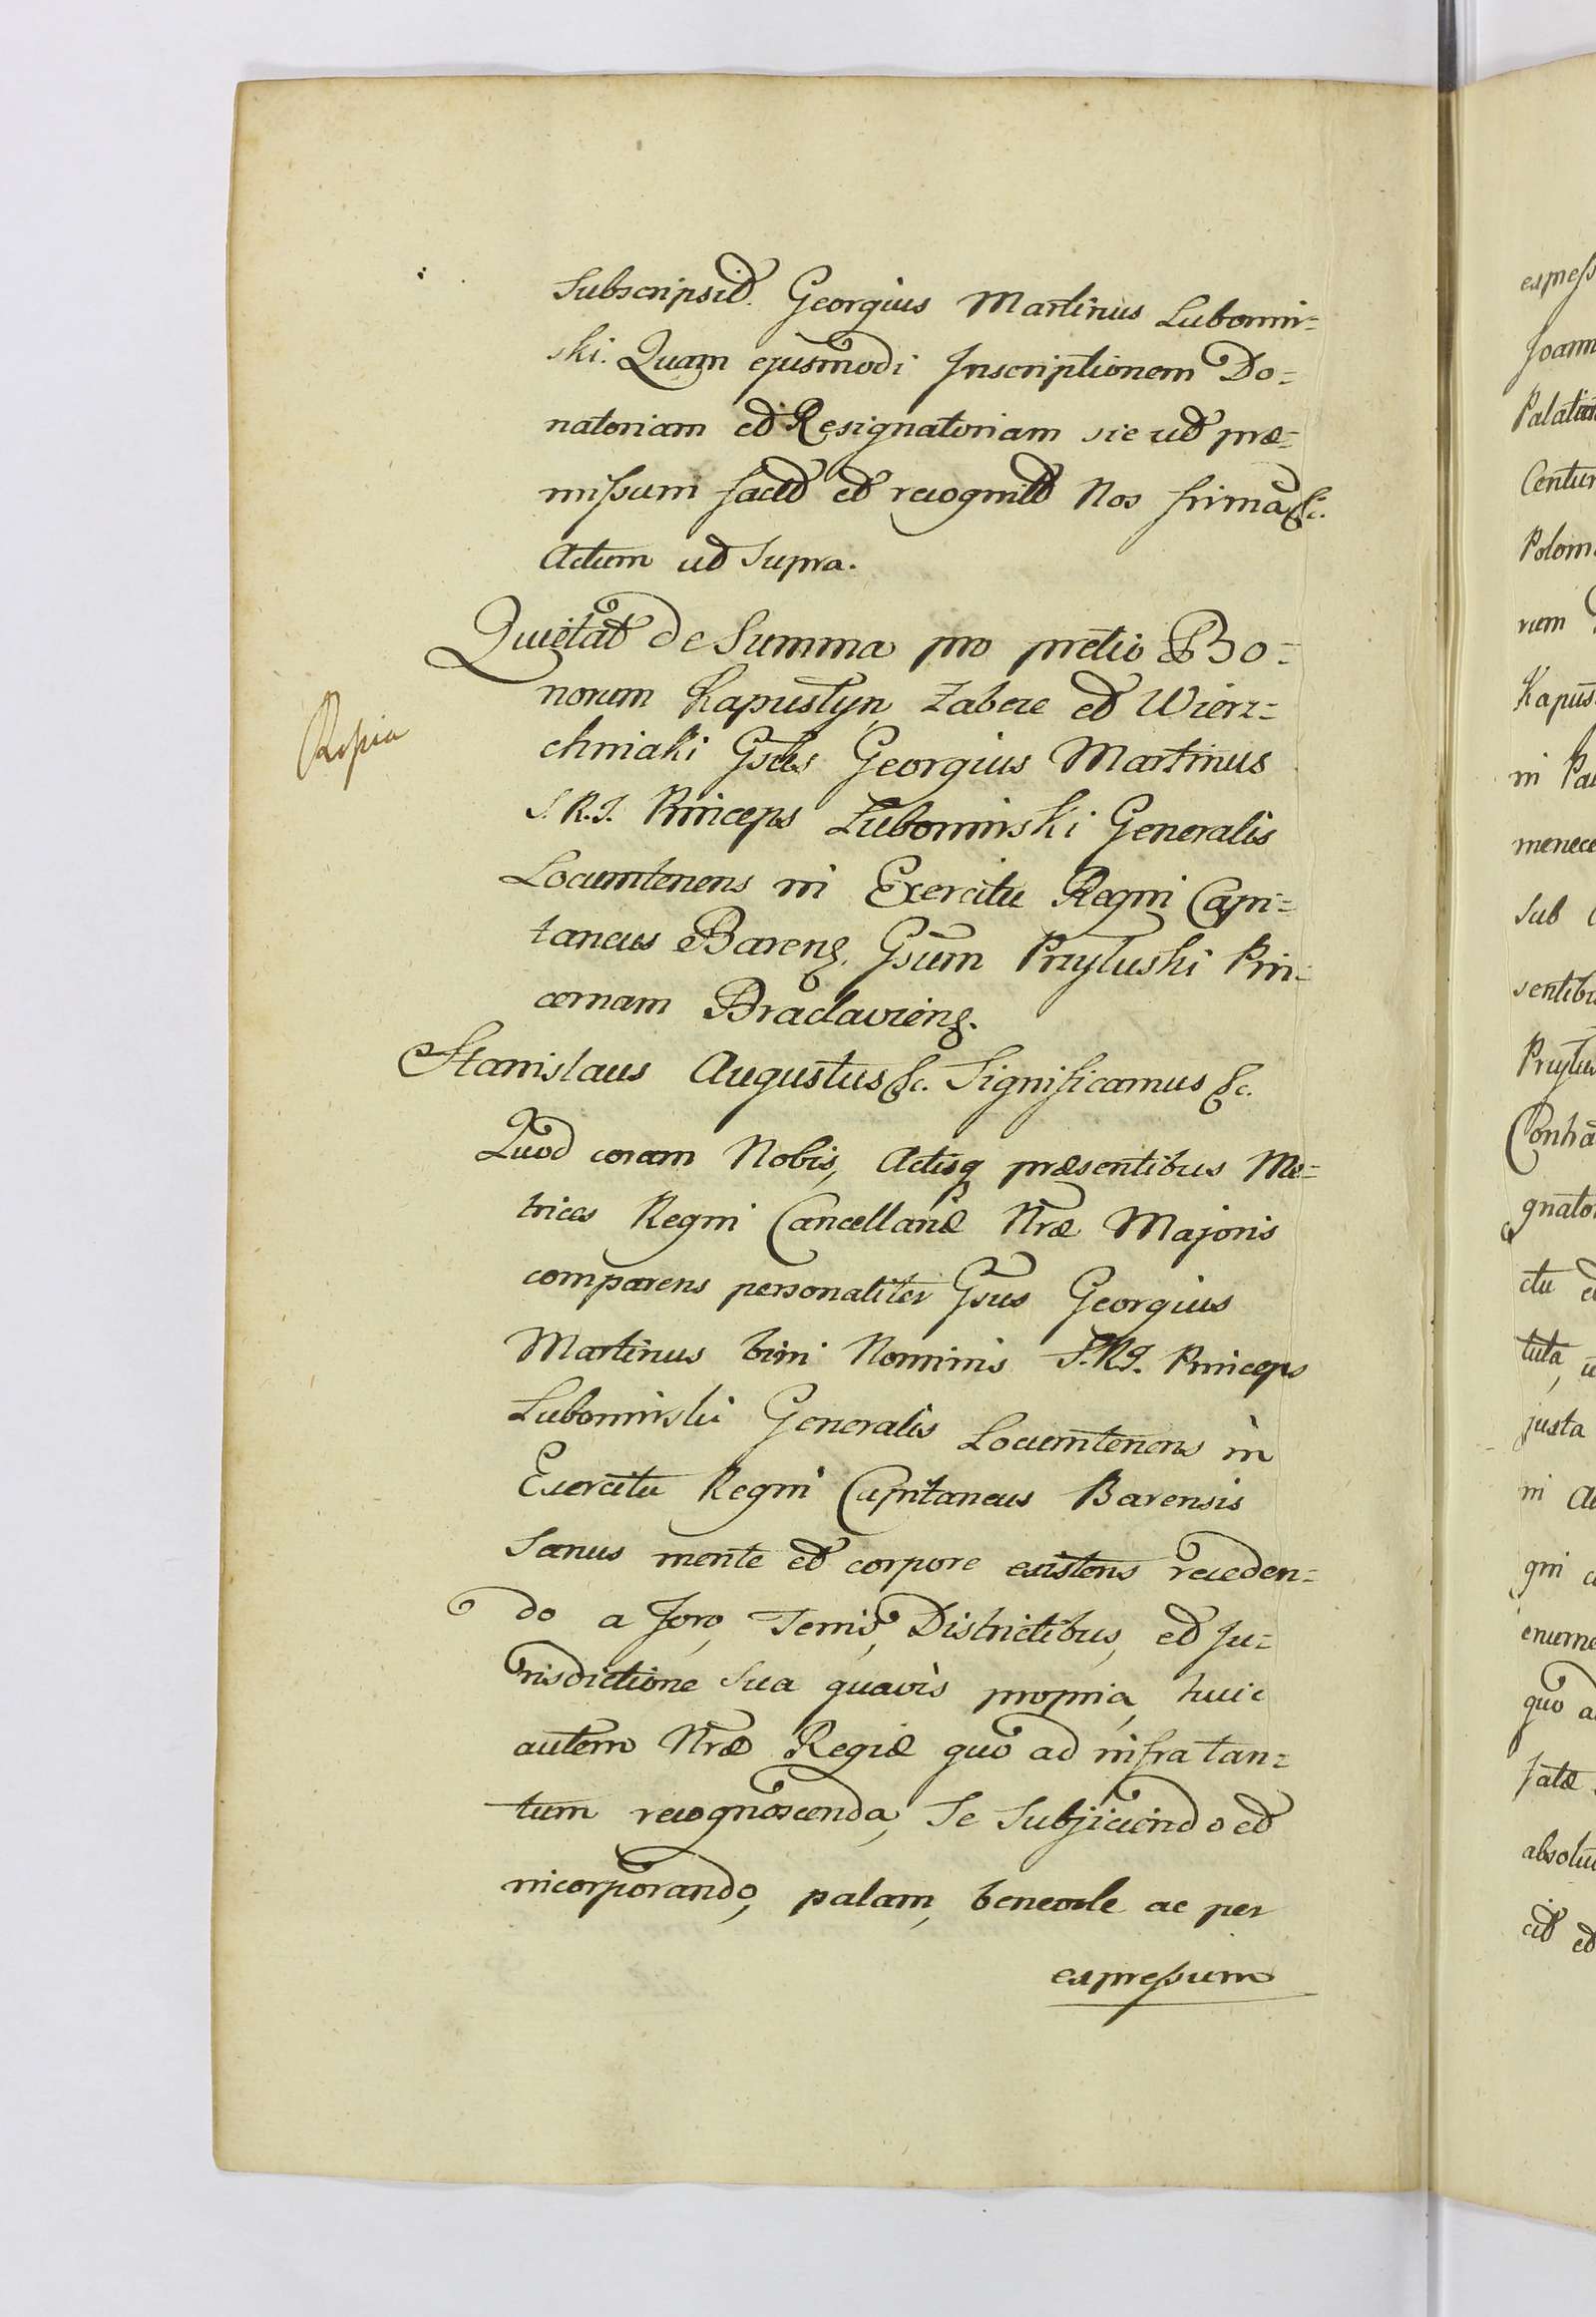 Subscripsit. Georgius Martinus Lubomir=
ski. Quam ejusmodi Inscriptionem Do=
natoriam et Resignatoriam sic ut præ=
missum facit et recognit Nos firma &c.
Actum ut Supra.
Quietat de Summa pro pretio Bo=
norum Kapustyn, Zabere et Wierz=
chniaki Gsus Georgius Martinus
S.R.I. Princeps Lubomirski Generalis
Locumtenens in Exercitu Regni Capi=
taneus Barens. Gsum Przyluski Pin=
cernam Braclaviens.
Stanislaus Augustus &c. Significamus &c.
Quod coram Nobis, Actisq præsentibus Me=
trices Regni Cancellariæ Nræ Majoris
comparens personaliter Gsus Georgius
Martinus bini Nominis S.R.I. Princeps
Lubomirski Generalis Locumtenens in
Exercitu Regni Capitaneus Barensis
Sanus mente et corpore existens receden=
do a foro, Terris, Districtibus, et Ju=
risdictione Sua quavis propria, huic
autem Nræ Regiæ quo ad infra tan=
tum recognoscenda, Se Subjiciendo et
incorporando, palam, benevole ac per
expressum
Kopia
express
Joann
Palatin
Centur
Polom
rum
Kapus
in Pa
menece
Sub
sentibu
Przylu
Contra
gnato
ctu e
tuta, u
justa
in Ac
gni
enume
quo a
tatæ
absolu
cit et